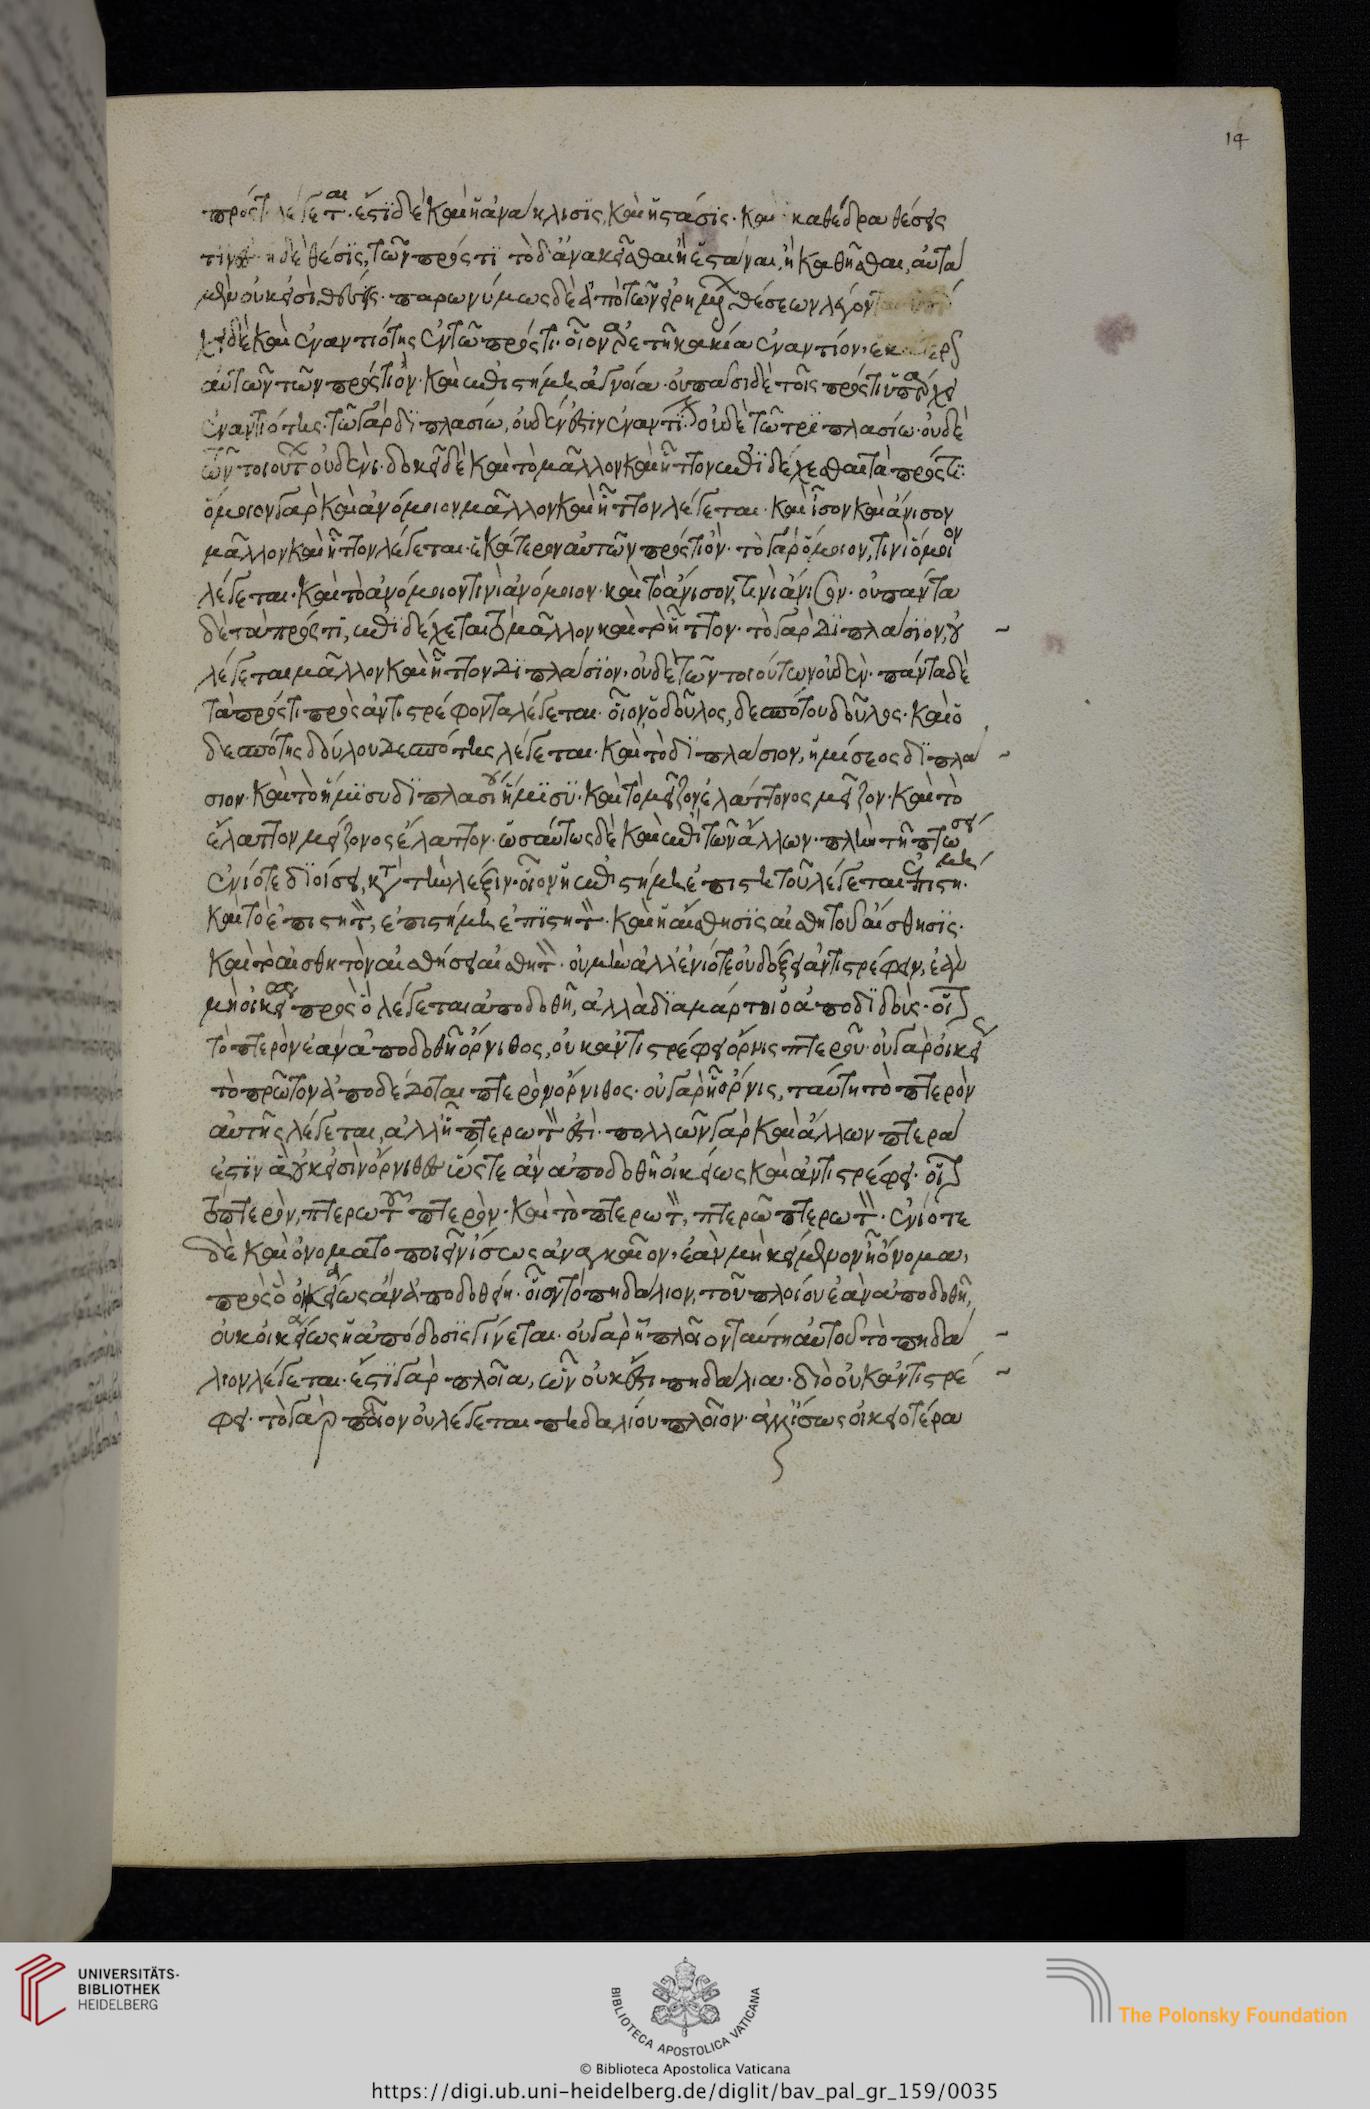 14
πρός τι λέγεται. ἔστι δὲ καὶ ἡ ἀνάκλισις, καὶ ἡ στάσις. καὶ καθέδρα θέσεις
τινὲς. ἡ δὲ θέσις, τῶν πρός τι τὸ δ' ἀνακεῖσθαι ἢ ἑστάναι, ἢ καθῆσθαι, αὐτὰ
μὲν οὐκ εἰσὶ θέσεις. παρωνύμως δὲ ἀπὸ τῶν εἰρημένων θέσεων λέγονται
δὲ καὶ ἐναντιότης ἐν τῶ πρός τι. οἷον ἀρετὴ κακία ἐναντίον, ἑκάτερον
αὐτῶν τῶν πρός τι ὄν. καὶ ἐπιστήμη ἀγνοία. οὐ πᾶσι δὲ τοῖς πρός τι ὑπάρχει
ἐναντιότης. τῶ γὰρ διπλασίω, οὐδέν ἐστιν ἐναντίον οὐδὲ τῶ τριπλασίω. οὐδὲ
τῶν τοιούτων οὐδενί. δοκεῖ δὲ καὶ τὸ μᾶλλον καὶ ἧττον ἐπιδέχεσθαι τὰ πρός τι.
ὅμοιον γὰρ καὶ ἀνόμοιον μᾶλλον καὶ ἧττον λέγεται. καὶ ἴσον καὶ ἄνισον
μᾶλλον καὶ ἧττον λέγεται. ἑκάτερον αὐτῶν πρός τι ὄν. τὸ γὰρ ὅμοιον, τινὶ ὅμοιον
λέγεται. καὶ τὸ ἀνόμοιον τινὶ ἀνόμοιον. καὶ τὸ ἄνισον, τινὶ ἄνισον. οὐ πάντα
δὲ τὰ πρός τι, ἐπιδέχεται τὸ μᾶλλον καὶ τὸ ἧττον. τὸ γὰρ διπλάσιον, οὐ
λέγεται μᾶλλον καὶ ἧττον διπλάσιον. οὐδὲ τῶν τοιούτων οὐδέν. πάντα δὲ
τὰ πρός τι πρὸς ἀντιστρέφοντα λέγεται. οἷον ὁ δοῦλος, δεσπότου δοῦλος. καὶ ὁ
δεσπότης δούλου δεσπότης λέγεται. καὶ τὸ διπλάσιον, ἡμίσεος διπλά
σιον. καὶ τὸ ἥμισυ διπλασίου ἥμισυ. καὶ τὸ μεῖζον, ἐλάττονος μεῖζον. καὶ τὸ
ἔλαττον μείζονος ἔλαττον. ὡσαύτως δὲ καὶ ἐπὶ τῶν ἄλλων. πλὴν τῆ πτώσει
ἐνίοτε διοίσει, κατὰ τὴν λέξιν. οἷον ἡ ἐπιστήμη ἐπιστητοῦ λέγεται ἐπιστήμη.
καὶ τὸ ἐπιστητὸν, ἐπιστήμη ἐπιστητόν. καὶ ἡ αἴσθησις αἰσθητοῦ αἴσθησις.
καὶ τὸ αἰσθητὸν αἰσθήσει αἰσθητόν. οὐ μὴν ἀλλ' ἐνίοτε οὐ δόξει ἀντιστρέφειν, ἐὰν
μὴ οἰκείως πρὸς ὃ λέγεται ἀποδοθῆ, ἀλλὰ διαμάρτη ὁ ἀποδιδούς. οἷον
τὸ πτερὸν ἐὰν ἀποδοθῆ ὄρνιθος, οὐκ ἀντιστρέφει ὄρνις πτεροῦ. οὐ γὰρ οἰκείως
τὸ πρῶτον ἀποδέδοται πτερὸν ὄρνιθος. οὐ γὰρ ᾗ ὄρνις, ταύτη τὸ πτερὸν
αὐτῆς λέγεται, ἀλλ' ᾗ πτερωτόν ἐστι. πολλῶν γὰρ καὶ ἄλλων πτερά
ἐστιν ἃ οὐκ εἰσὶν ὄρνιθες ὥστε ἂν ἀποδοθῆ οἰκείως καὶ ἀντιστρέφει. οἷον
τὸ πτερὸν, πτερωτοῦ πτερὸν. καὶ τὸ πτερωτὸν, πτερῶ πτερωτόν. ἐνίοτε
δὲ καὶ ὀνοματοποιεῖν ἴσως ἀναγκαῖον, ἐὰν μὴ κείμενον ᾖ ὄνομα,
πρὸς ὃ οἰκείως ἂν ἀποδοθείη. οἷον τὸ πηδάλιον, τοῦ πλοίου ἐὰν ἀποδοθῆ,
οὐκ οἰκεία ἡ ἀπόδοσις γίνεται. οὐ γὰρ ᾗ πλοῖον ταύτη αὐτοῦ τὸ πηδά
λιον λέγεται. ἔστι γὰρ πλοῖα, ὧν οὐκ ἔστι πηδάλια. διὸ οὐκ ἀντιστρέ
φει. τὸ γὰρ πλοῖον οὐ λέγεται πηδαλίου πλοῖον. ἀλλ' ἴσως οἰκειοτέρα
UNIVERSITÄTS-
BIBLIOTHEK
HEIDELBERG
BIBLIOTECA APOSTOLICA VATICANA
The Polonsky Foundation
© Biblioteca Apostolica Vaticana
https://digi.ub.uni-heidelberg.de/diglit/bav_pal_gr_159/0035